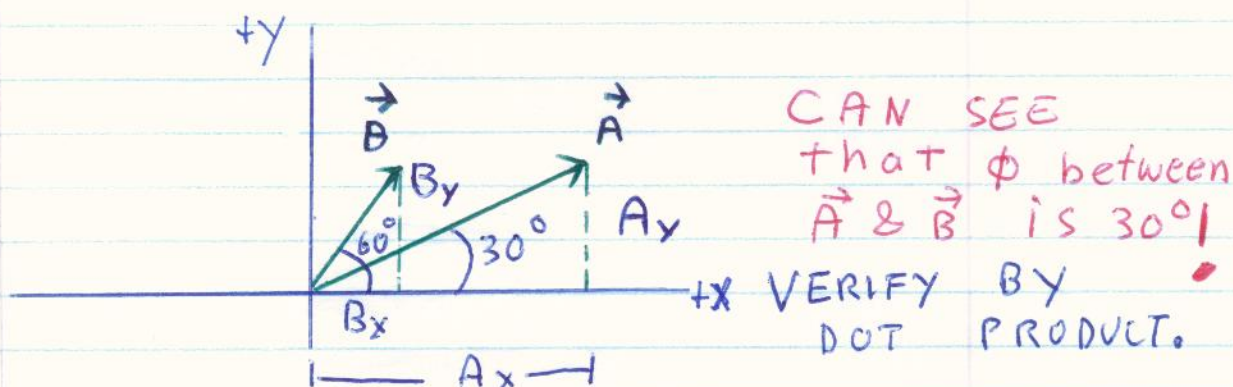 +y
B⃗
A⃗
By
60°
30°
Ay
+x
Bx
Ax
CAN SEE
that φ between
A⃗ & B⃗ is 30°!
VERIFY BY
DOT PRODUCT.